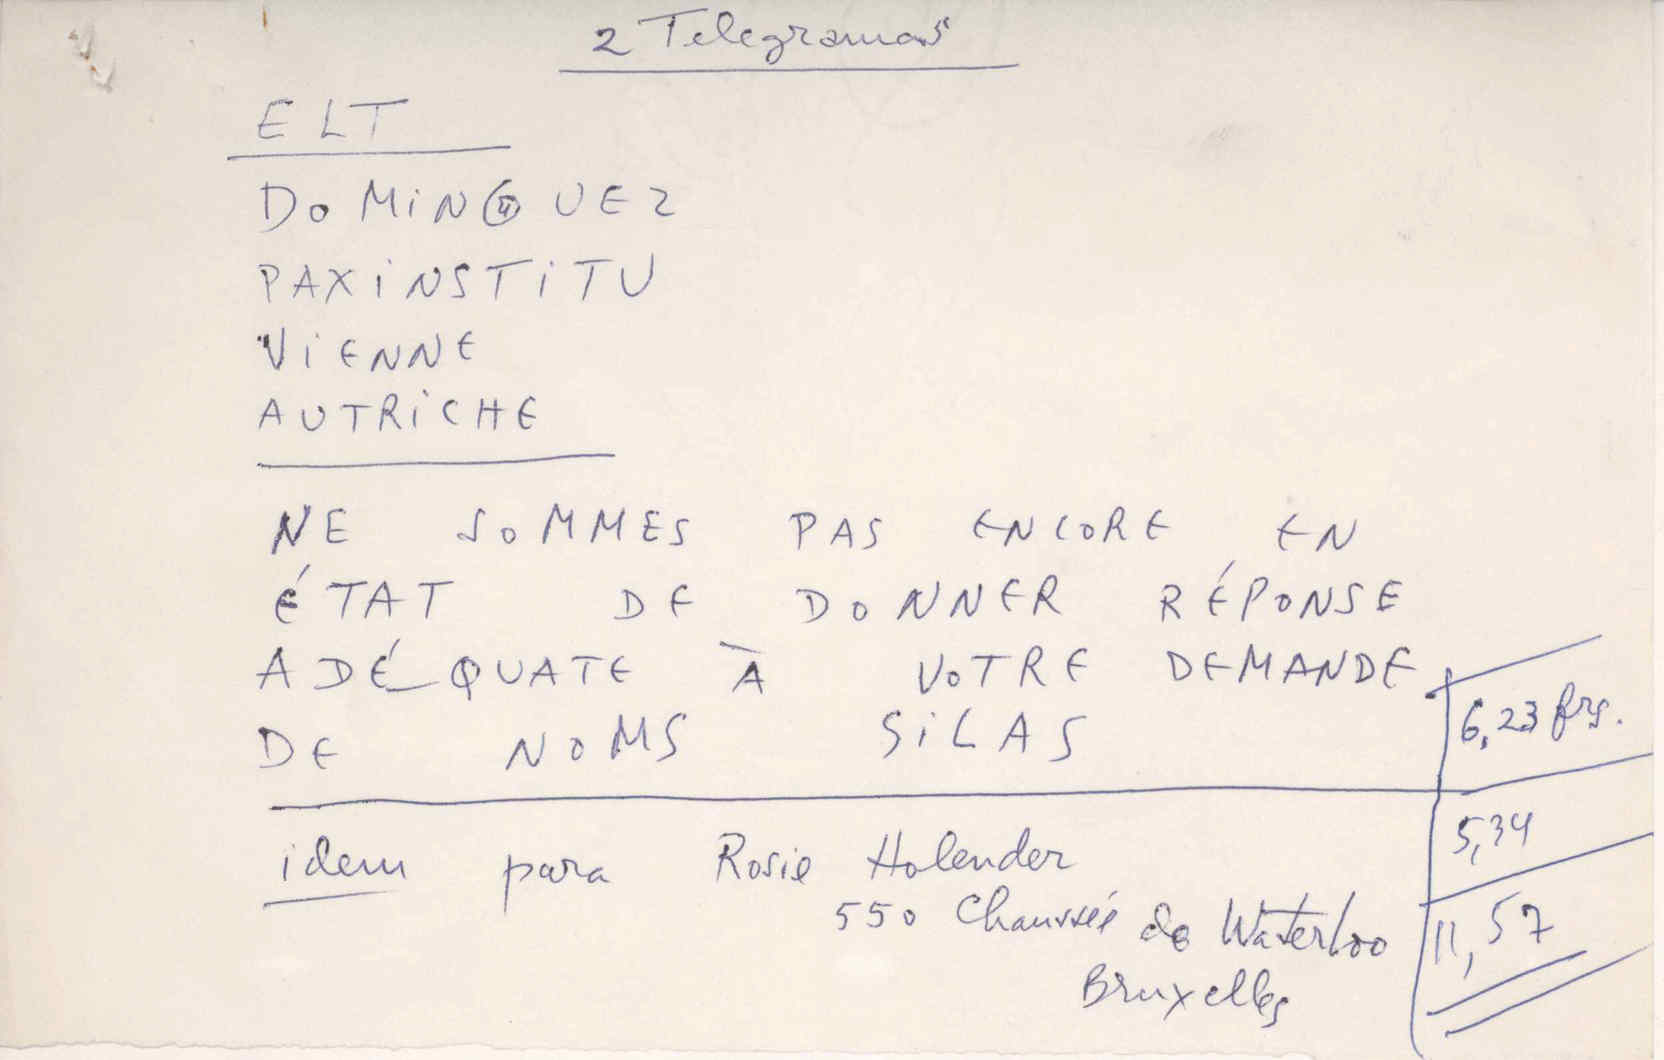 2 Telegramas
ELT
DOMINGUEZ
PAXINSTITU
VIENNE
AUTRICHE
NE SOMMES PAS ENCORE EN
ÉTAT DE DONNER RÉPONSE
ADÉQUATE À VOTRE DEMANDE
DE NOMS SILAS
6,23 frs.
5,34
11,57
idem para Rosie Holender
550 Chaussée de Waterloo
Bruxelles